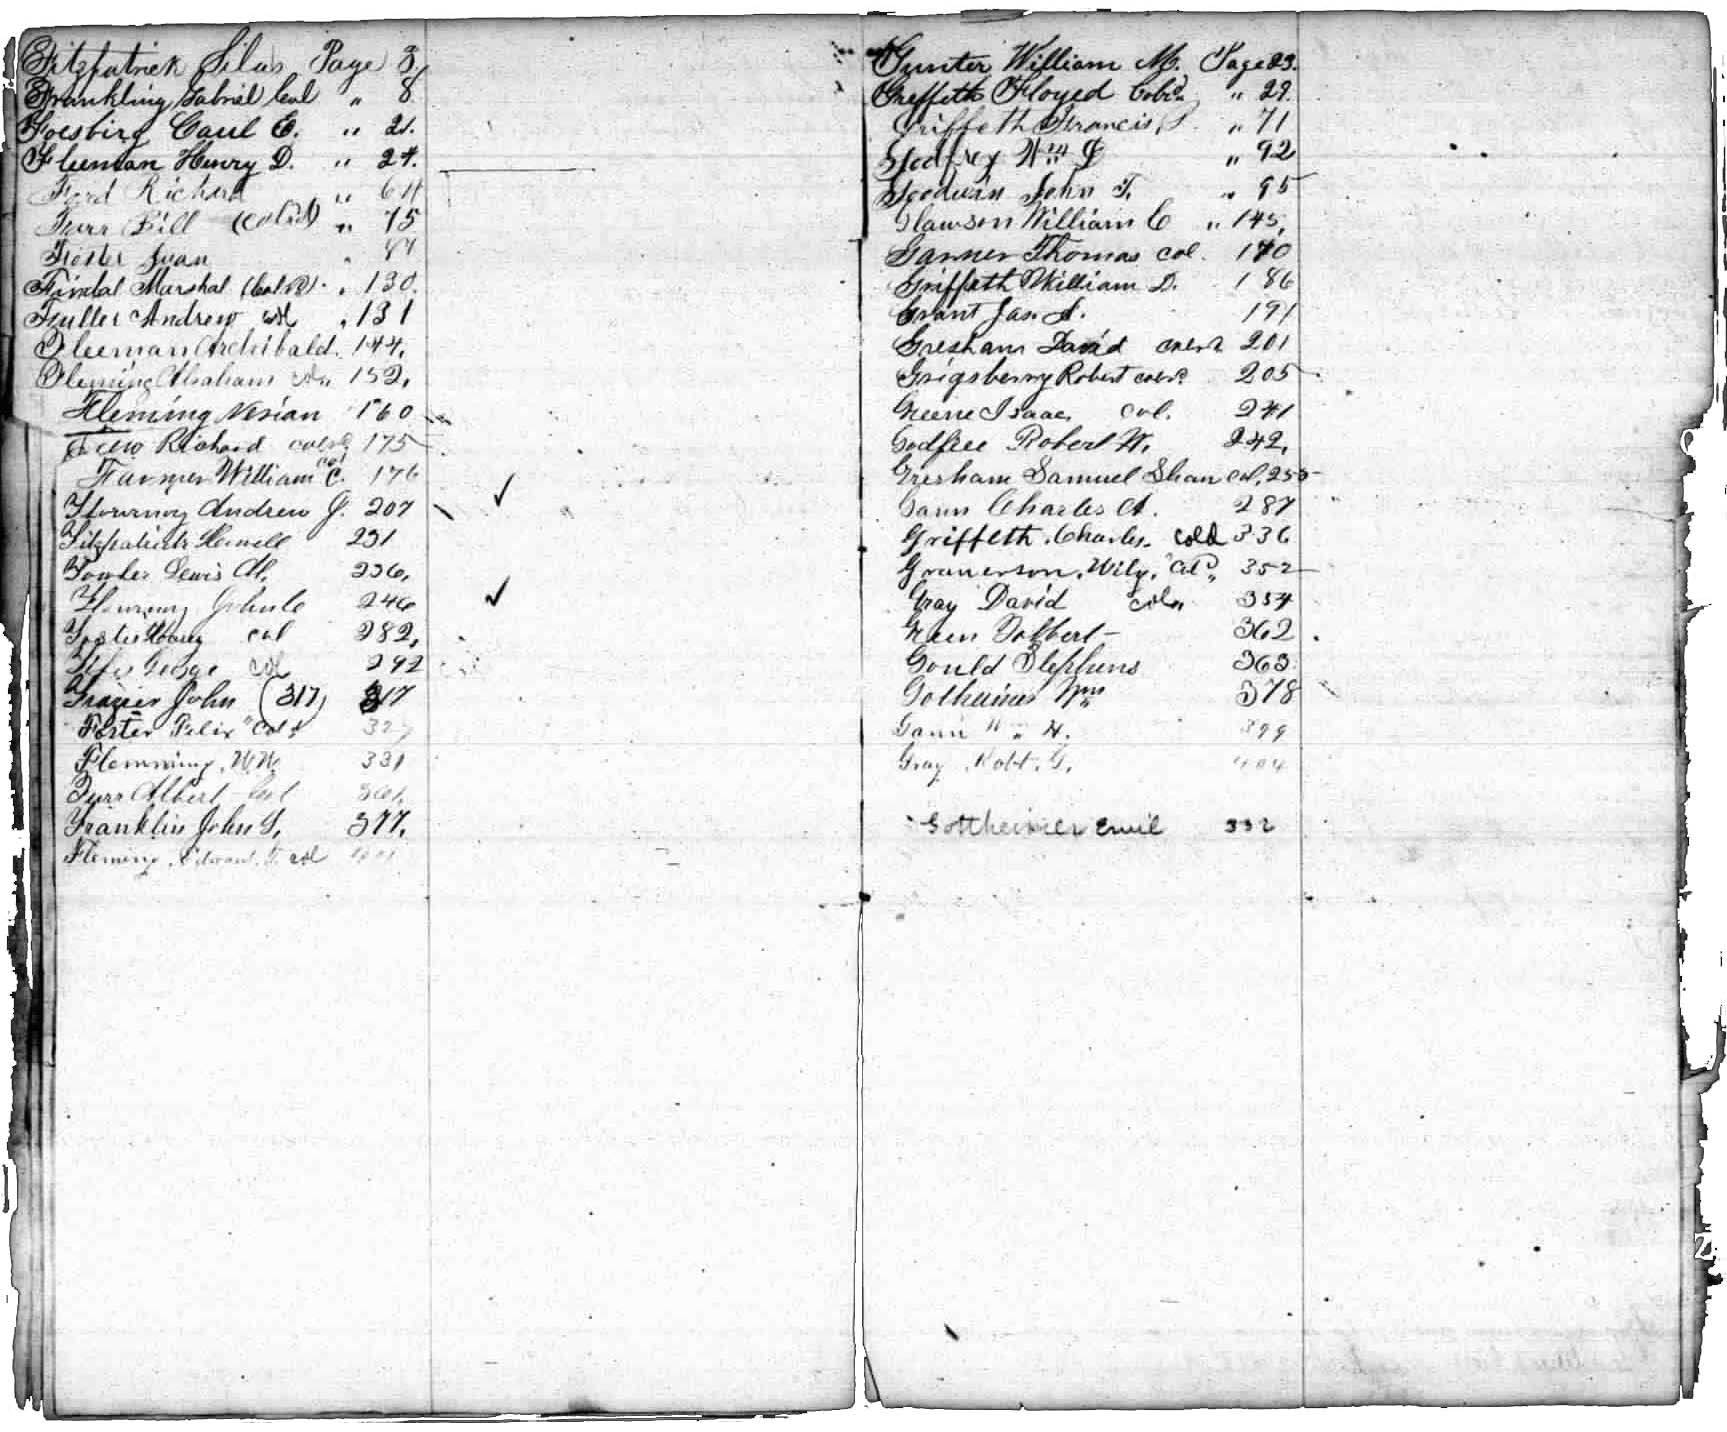 Fitzpatrick Silas Page 3.
Frankling Gabriel Col " 8
Foesbirg Carel E. " 21.
Fleeman Henry D. " 24.
Ford Richard " 64
Furr Bill (Colrd) " 75
Foster 87
Findal Marshal (Cold) " 130.
Fuller Andrew col " 131
Fleeman Archibald. 144.
Fleming Abraham col 152.
Fleming Nesian 160
Few Richard colrd 175
Farmer William C. col 176
Flowrnoy Andrew J. 207
Fitzpatrick 231
Fowler Lewis M. 236.
Flowrnoy John C 246
Foster col 282.
George col 292
Frazier John (317) 317
Foster Felix "Cold
Flemming, W.W. 331
Furr Albert Col 361.
Franklin John S. 377.
Fleming, Edward. T. col
Gunter William M. Page 23.
Greffeth Floyed Colrd " 29.
Griffeth Francis, P. " 71
Godfrey Wm " 92
Goodwin John T. " 95
Glawson William C " 145.
Garner Thomas col. 170
Griffeth William D. 186
Grant Jas. A. 191
Gresham David colrd 201
Grigsberry Robert colrd 205
Greene Isaac col. 241
Godfree Robert W. 242.
Gresham Samuel Shan col. 255
Gann Charles A. 287
Griffeth Charles. cold 336
Granerson. Wily. "Cold" 352
Gray David col 354
Green Tolbert - 362
Gould Stephens 363
Gotheimer Wm 378
Gann " " H. 399
Gray Robt. G. 404
Gottheimer Emil 332